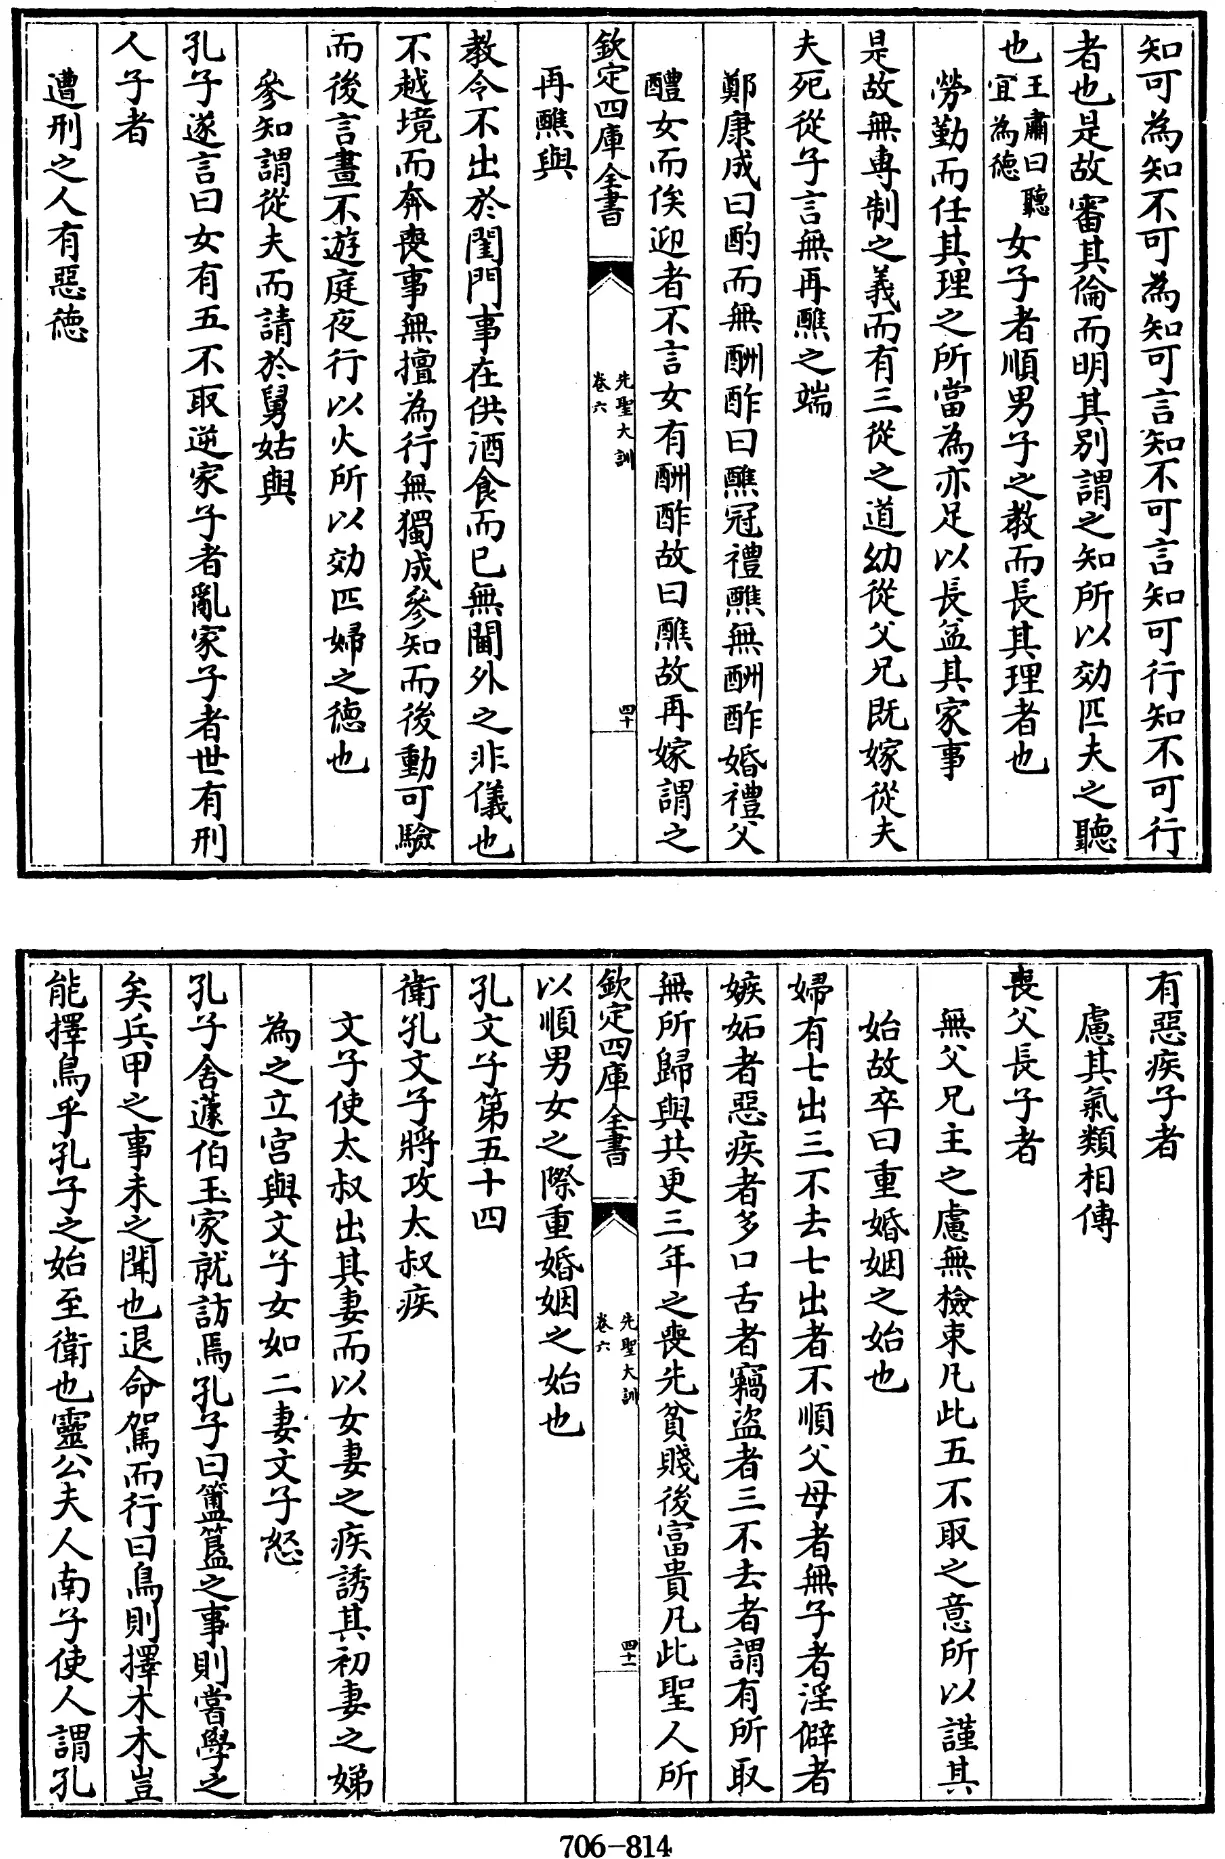 知可為知不可為知可言知不可言知可行知不可行
者也是故審其倫而明其別謂之知所以効匹夫之聽
也王肅曰聽宜為徳女子者順男子之教而長其理者也
勞勤而任其理之所當為亦足以長益其家事
是故無專制之義而有三從之道幼從父兄既嫁從夫
夫死從子言無再醮之端
鄭康成曰酌而無酬酢曰醮冠禮醮無酬酢婚禮父
醴女而俟迎者不言女有酬酢故曰醮故再嫁謂之
欽定四庫全書
先聖大訓
卷六
四十
再醮與
教令不出於閨門事在供酒食而已無閫外之非儀也
不越境而奔喪事無擅為行無獨成參知而後動可驗
而後言晝不遊庭夜行以火所以効匹婦之徳也
參知謂從夫而請於舅姑與
孔子遂言曰女有五不取逆家子者亂家子者世有刑
人子者
遭刑之人有惡徳
有惡疾子者
慮其氣類相傳
喪父長子者
無父兄主之慮無檢束凡此五不取之意所以謹其
始故卒曰重婚姻之始也
婦有七出三不去七出者不順父母者無子者淫僻者
嫉妬者惡疾者多口舌者竊盜者三不去者謂有所取
無所歸與共更三年之喪先貧賤後富貴凡此聖人所
欽定四庫全書
先聖大訓
卷六
四十一
以順男女之際重婚姻之始也
孔文子第五十四
衛孔文子將攻太叔疾
文子使太叔出其妻而以女妻之疾誘其初妻之娣
為之立宮與文子女如二妻文子怒
孔子舍蘧伯玉家就訪焉孔子曰簠簋之事則嘗學之
矣兵甲之事未之聞也退命駕而行曰鳥則擇木木豈
能擇鳥乎孔子之始至衛也靈公夫人南子使人謂孔
706-814